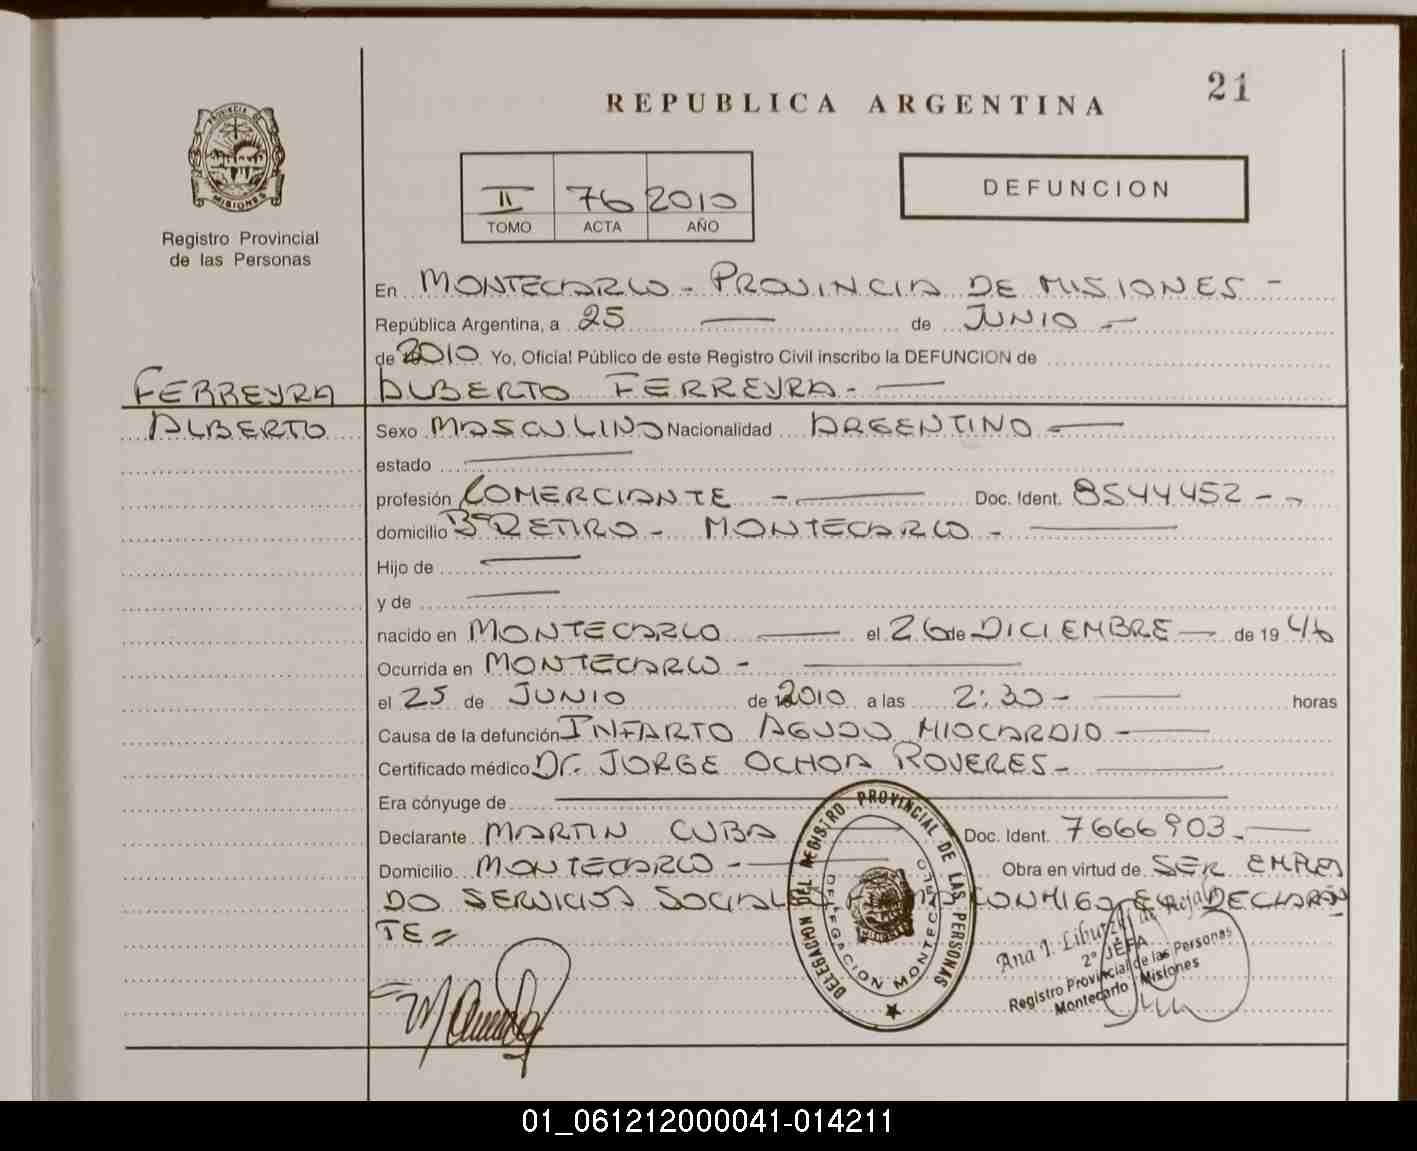 21
REPUBLICA ARGENTINA
PROVINCIA DE
MISIONES
Registro Provincial
de las Personas
II 76 2010
TOMO ACTA AÑO
DEFUNCION
En MONTECARLO - PROVINCIA DE MISIONES -
República Argentina, a 25 de JUNIO -
de 2010 Yo, Oficial Público de este Registro Civil inscribo la DEFUNCION de
FERREYRA
ALBERTO
ALBERTO FERREYRA. -
Sexo MASCULINO Nacionalidad ARGENTINO
estado
profesión COMERCIANTE - Doc. Ident. 8544452 - -
domicilio Bº RETIRO - MONTECARLO -
Hijo de
y de
nacido en MONTECARLO el 26 de DICIEMBRE de 19 46
Ocurrida en MONTECARLO -
el 25 de JUNIO de 2010 a las 2:30 - horas
Causa de la defunción INFARTO AGUDO MIOCARDIO -
Certificado médico Dr. JORGE OCHOA ROVERES -
Era cónyuge de
Declarante MARTIN CUBA Doc. Ident. 7666903 -
Domicilio MONTECARLO - Obra en virtud de SER EMPLEA
DO SERVICIOS SOCIALES CONMIGO EL DECLARAN
TE =
DELEGACION DEL REGISTRO PROVINCIAL DE LAS PERSONAS
DELEGACION MONTECARLO
Ana I. de Rejala
2º JEFA
Registro Provincial de las Personas
Montecarlo Misiones
01_061212000041-014211